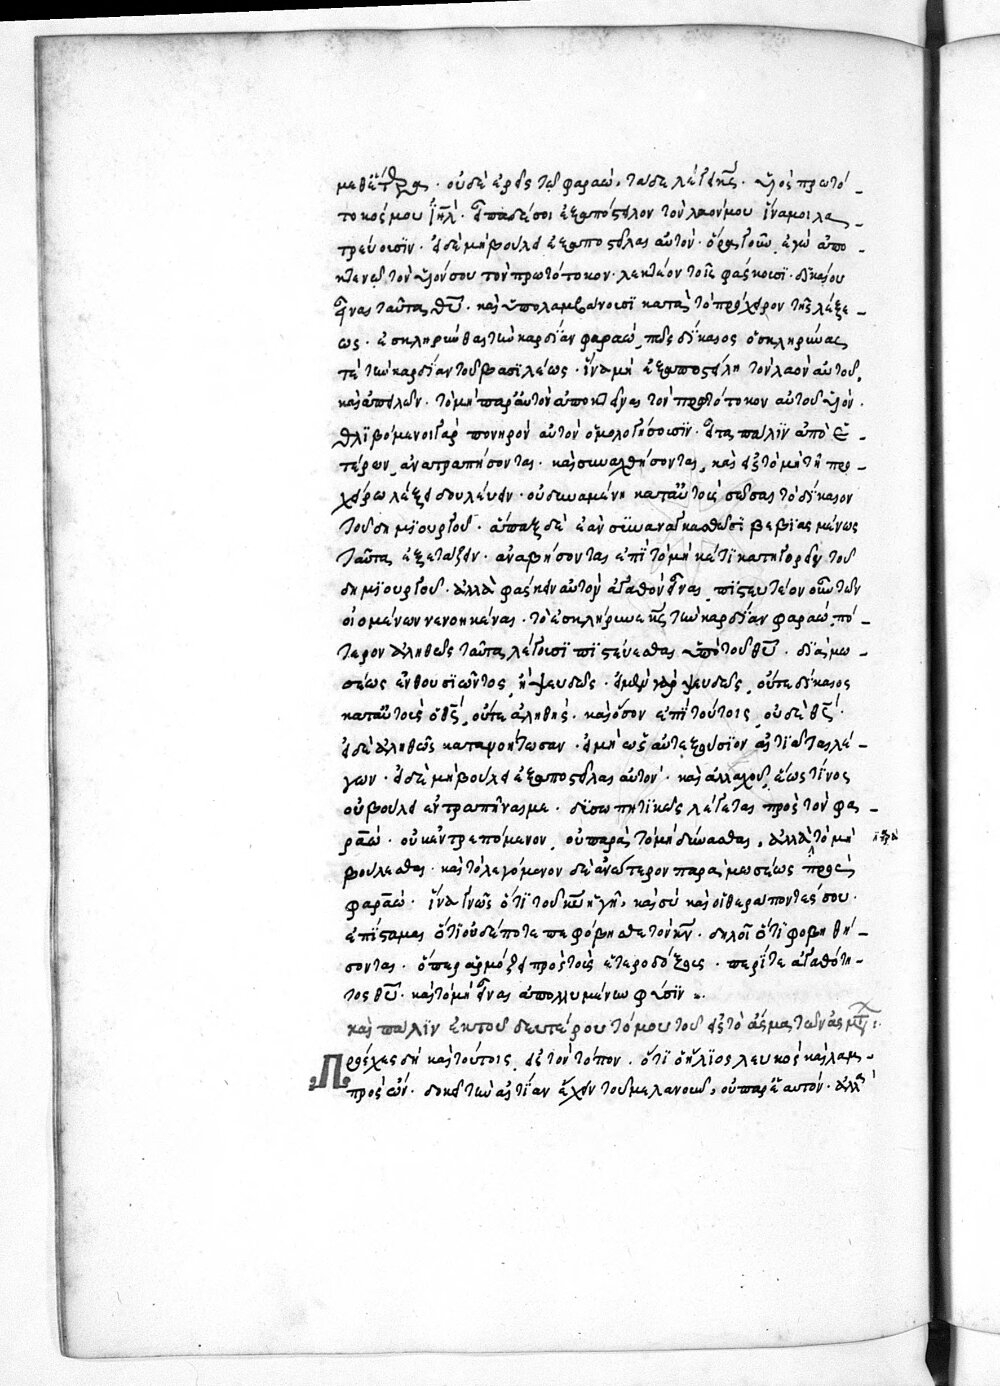 μεθ' ἕτερα. οὐδὲ ἐρεῖς τῷ φαραώ, τάδε λέγει κς. υἱὸς πρωτό-
τοκός μου ιηλ. εἶπα δέ σοι ἐξαπόστειλον τὸν λαόν μου ἵνα μοι λα
τρεύσωσϊν. εἰ δὲ μὴ βούλει ἐξαποστεῖλαι αὐτὸν. ὅρα οὖν ἐγὼ ἀπο-
κτενῶ τὸν υἱόν σου τὸν πρωτότοκον. λεκτέον τοῖς φάσκουσϊ. δίκαιον
εἶναι ταῦτα θυ. καὶ ὑπολαμβάνουσϊ κατὰ τὸ πρόχειρον τῆς λέξε-
ως. ἐσκληρύνθαι τὴν καρδίαν φαραώ, πῶς δίκαιος ὁ σκληρύνας
τὲ τὴν καρδίαν τοῦ βασϊλέως. ἵνα μὴ ἐξαποστείλη τὸν λαὸν αὐτοῦ,
καὶ ἀπειλῶν. τὸ μὴ παρ' αὐτὸν ἀποκτεῖναι τὸν πρωτότοκον αὐτοῦ υἱόν.
θλϊβόμενοι γὰρ πονηρὸν αὐτὸν ὁμολογήσουσϊν. εἶτα πάλϊν ἀπὸ ἑ-
τέρων ἀνατραπήσονται. καὶ συναχθήσονται, καὶ ἐξ τὸ μὴ τῆ προ-
χείρω λέξει δουλεύειν. οὐ δυναμένη κατ' αὐτοὺς σῶσαι τὸ δίκαιον
τοῦ δημϊουργοῦ. ἅπαξ δὲ ἐὰν συναναγκασθῶσϊ βεβϊασμένως
ταῦτα ἐξετάζειν. ἀναβήσονται ἐπὶ τὸ μηκέτϊ κατηγορεῖν τοῦ
δημϊουργοῦ. ἀλλὰ φάσκειν αὐτὸν ἀγαθὸν εἶναι. πϊστευτέον οὖν τῶν
οἰομένων νενοηκέναι. τὸ ἐσκλήρυνε κς τὴν καρδίαν φαραώ, πό-
τερον ἀληθῶς ταῦτα λέγουσϊ πϊστεύεσθαι ὑπὸ τοῦ θυ. δϊὰ μω
σέως ἐνθουσϊῶντος ἢ ψευδῶς. εἰ μὲν γὰρ ψευδῶς, οὔτε δίκαιος
κατ' αὐτοὺς ὁ θς, οὔτε ἀληθής. καὶ ὅσον ἐπὶ τούτοις οὐδὲ θς.
εἰ δὲ ἀληθῶς κατανοήτωσαν. εἰ μὴ ὡς αὐτεξουσϊον αἰτϊᾶται λέ-
γων. εἰ δὲ μὴ βούλει ἐξαποστεῖλαι αὐτὸν. καὶ ἀλλαχοῦ, ἕως τϊνος
οὐ βούλει ἐντραπῆναι με. δυσωπητϊκῶς λέγεται πρὸς τὸν φα-
ραώ. οὐκ ἐντρεπόμενον, οὐ παρὰ τὸ μὴ δύνασθαι, ἀλλὰ τὸ μὴ
βούλεσθαι. καὶ τὸ λεγόμενον δὲ ἀνωτέρον παρὰ μωσέως πρὸς
φαραώ. ἵνα γνῷς ὅτϊ τοῦ κυ ἡ γῆ, καὶ σὺ καὶ οἱ θεράποντές σου.
ἐπίσταμαι ὅτϊ οὐδέποτε πεφόβησθε τὸν κν. δηλοῖ ὅτϊ φοβηθή-
σονται. ὅπερ ἁρμόζει πρὸς τοὺς ἑτεροδόξους. περί τε ἀγαθότη-
τος θυ. καὶ τὸ μὴ εἶναι ἀπολλυμένων φύσϊν:.
καὶ πάλϊν ἐκ τοῦ δευτέρου τόμου τοῦ εἰς τὸ ᾆσμα τῶν ᾀσμάτ:
Πρόσχες δὴ καὶ τούτοις εἰς τὸν τόπον. ὅτϊ ὁ ἥλϊος λευκὸς καὶ λαμ-
πρὸς ὢν. δοκεῖ τὴν αἰτίαν ἔχειν τοῦ μελανοῦν, οὐ παρ' ἑαυτὸν. ἀλλ'